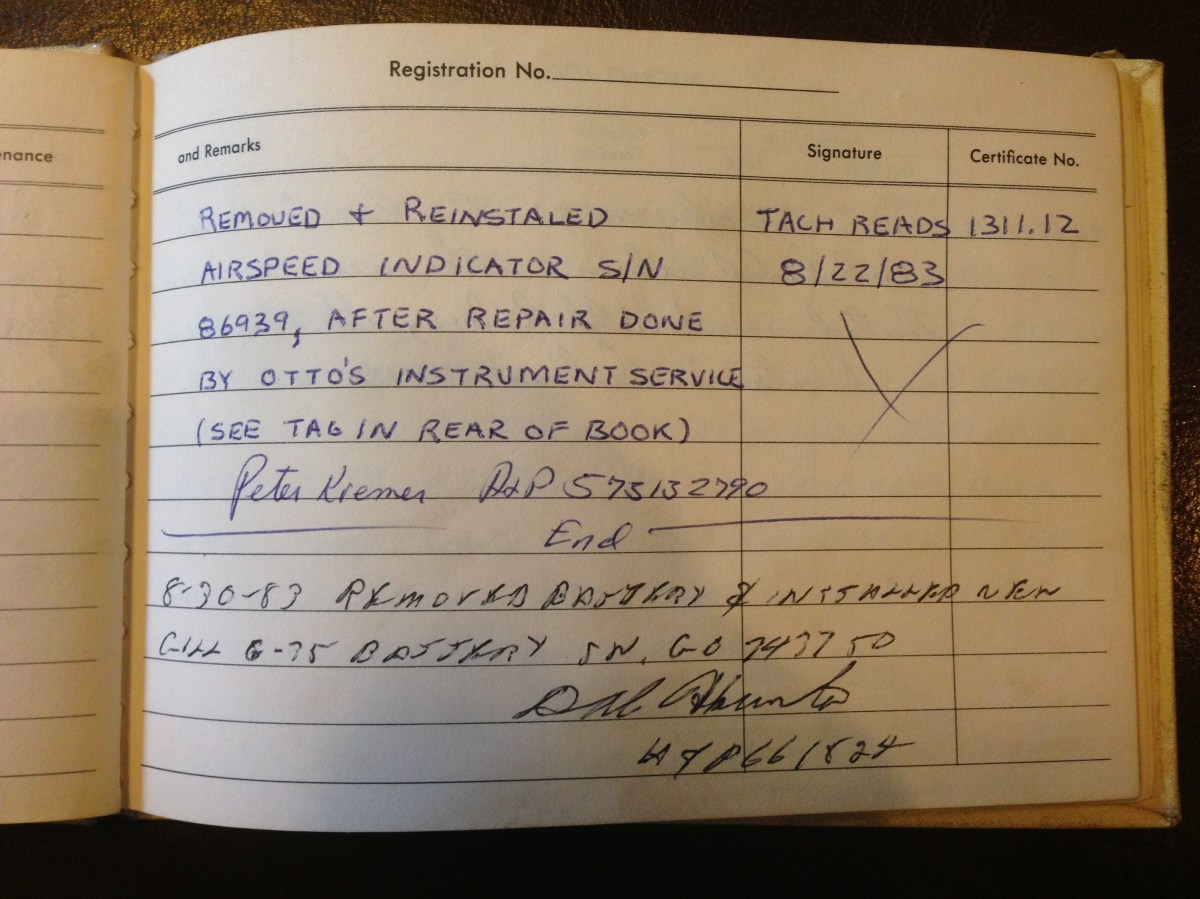 Registration No.
enance
and Remarks Signature Certificate No.
REMOVED + REINSTALED TACH READS 1311.12
AIRSPEED INDICATOR S/N 8/22/83
86939, AFTER REPAIR DONE
BY OTTO'S INSTRUMENT SERVICE
(SEE TAG IN REAR OF BOOK)
Peter Kremer A&P 573132790
End
8-30-83 REMOVED BATTERY & INSTALLED NEW
GILL G-35 BATTERY SN. GO 743750
A&P661824